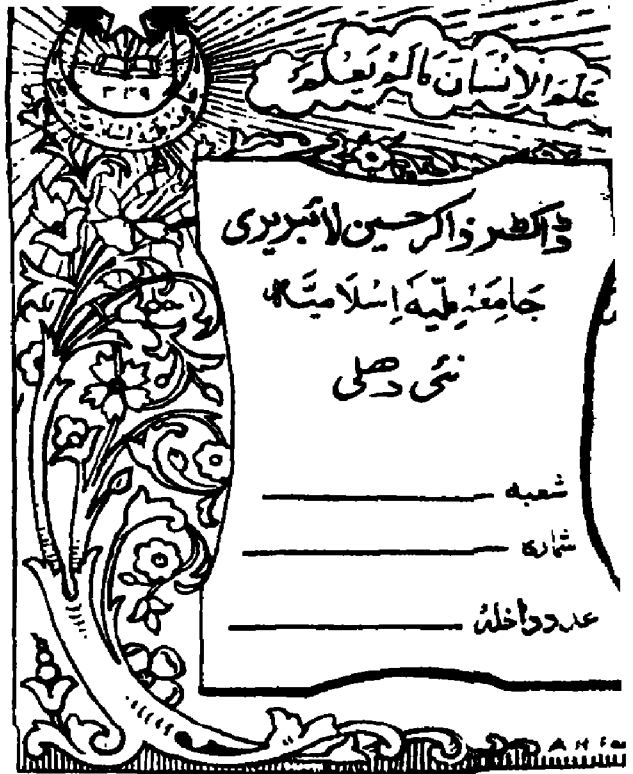 عَلَّمَ الْاِنْسَانَ مَا لَمْ يَعْلَمْ
ڈاکٹر ذاکر حسین لائبریری
جَامِعَہ مِلّیہ اِسْلَامِیَّہ
نئی دھلی
شعبہ
شمارہ
عدد داخلہ